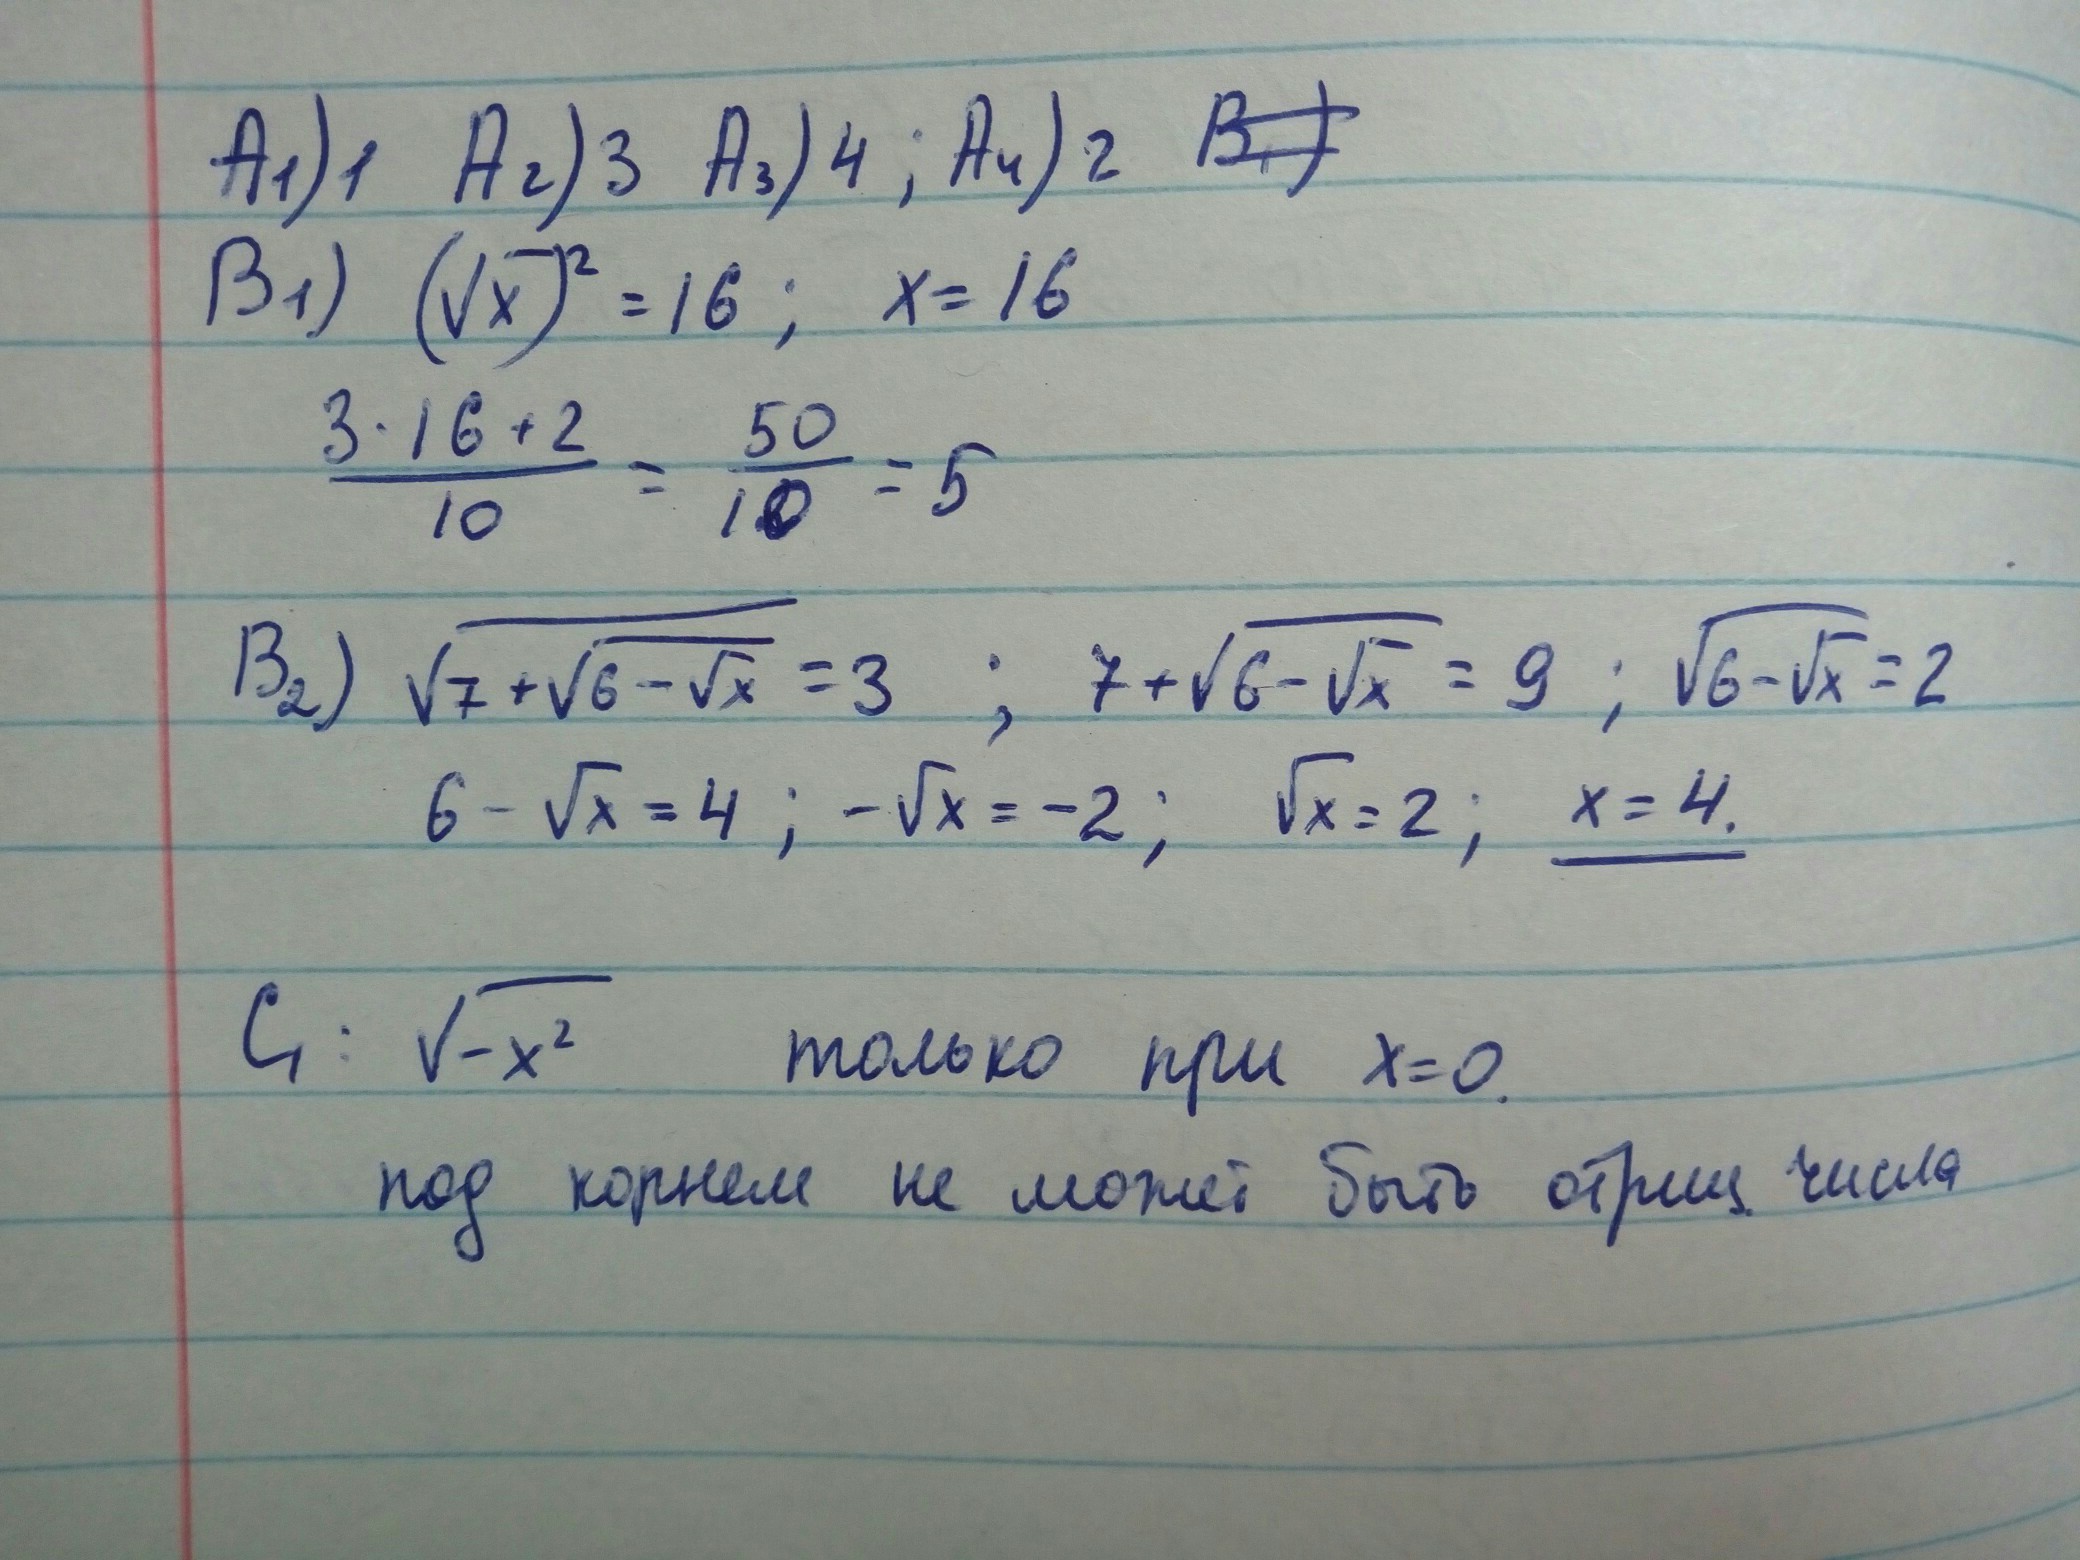 A₁) 1 A₂) 3 A₃) 4 ; A₄) 2
B₁) (√x)² = 16 ; x = 16
(3·16+2)/10 = 50/10 = 5
B₂) √(7+√(6-√x)) = 3 ; 7+√(6-√x) = 9 ; √(6-√x) = 2
6-√x = 4 ; -√x = -2 ; √x = 2 ; x = 4.
C₁ : √(-x²) только при x=0.
под корнем не может быть отриц. числа